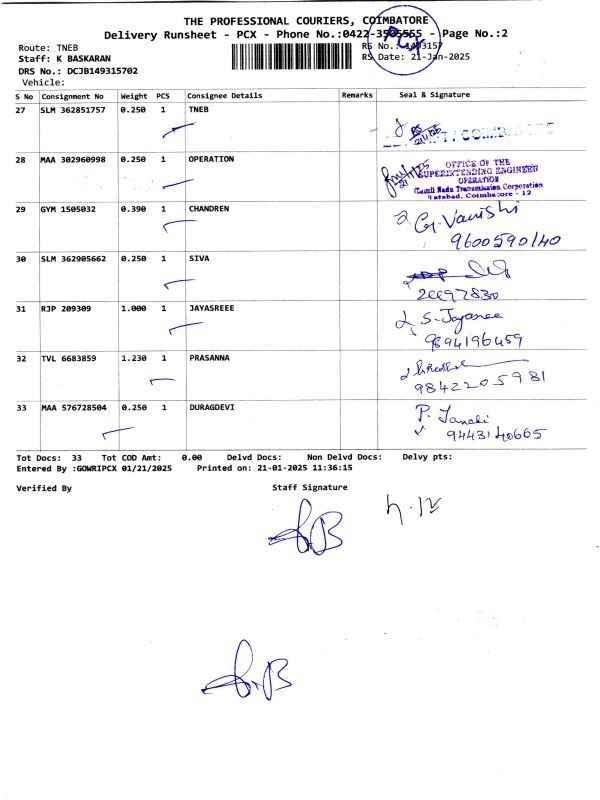 THE PROFESSIONAL COURIERS, COIMBATORE
Delivery Runsheet - PCX - Phone No.:0422-3505555 - Page No.:2
PCX
Route: TNEB
RS No.: 1493157
Staff: K BASKARAN
RS Date: 21-Jan-2025
DRS No.: DCJB149315702
Vehicle:
S No Consignment No Weight PCS Consignee Details Remarks Seal & Signature
27 SLM 362851757 0.250 1 TNEB
28 MAA 302960998 0.250 1 OPERATION
OFFICE OF THE
SUPERINTENDING ENGINEER
OPERATION
Tamil Nadu Transmission Corporation
Tatabad, Coimbatore - 12
29 GYM 1505032 0.390 1 CHANDREN
G. Vanishi
9600590140
30 SLM 362905662 0.250 1 SIVA
31 RJP 209309 1.000 1 JAYASREEE
S-Jayasree
9894196459
32 TVL 6683859 1.230 1 PRASANNA
9842205981
33 MAA 576728504 0.250 1 DURAGDEVI
P. Janaki
9443140665
Tot Docs: 33 Tot COD Amt: 0.00 Delvd Docs: Non Delvd Docs: Delvy pts:
Entered By :GOWRIPCX 01/21/2025 Printed on: 21-01-2025 11:36:15
Verified By Staff Signature